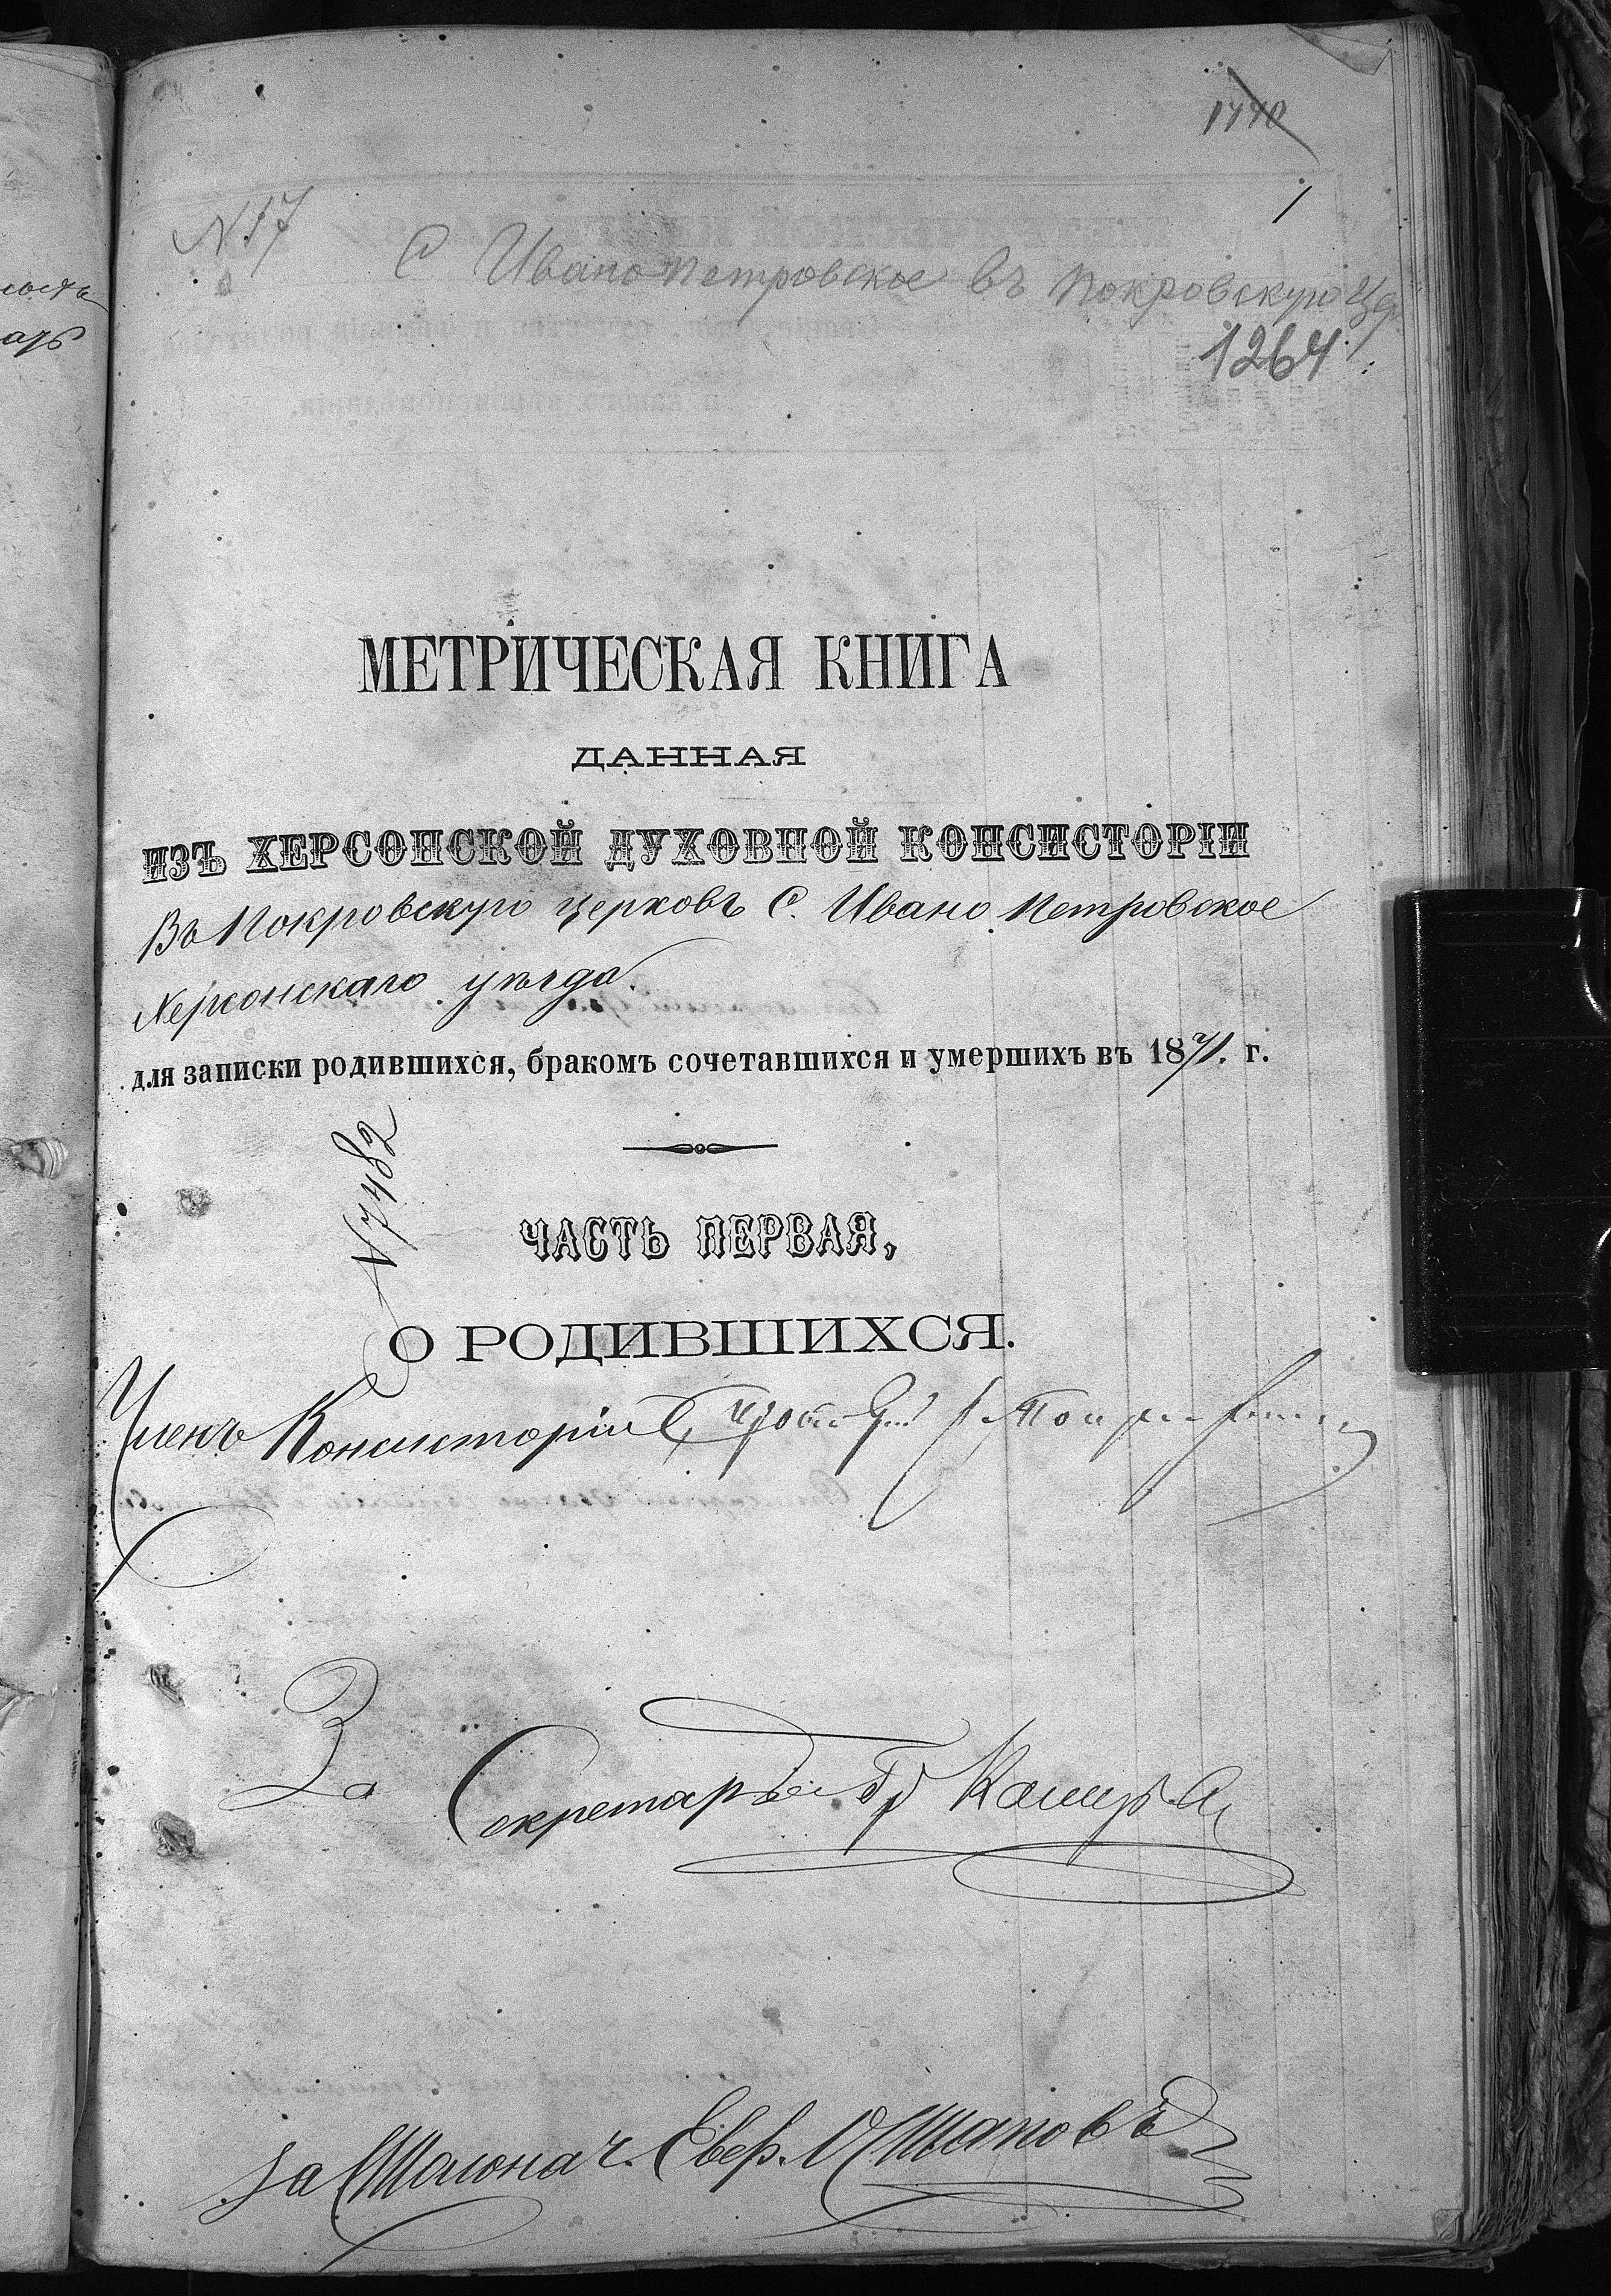 1440
1
N 17
С Ивано Петровское въ Покровскую Цер.
1264
МЕТРИЧЕСКАЯ КНИГА
ДАННАЯ
ИЗЪ ХЕРСОНСКОЙ ДУХОВНОЙ КОНСИСТОРІИ
Въ Покровскую церковь С. Ивано Петровское
Херсонскаго уѣзда.
для записки родившихся, бракомъ сочетавшихся и умершихъ въ 1871. г.
N 7482
ЧАСТЬ ПЕРВАЯ,
О РОДИВШИХСЯ.
Членъ Консисторіи
За Секретаря
За Столонач.